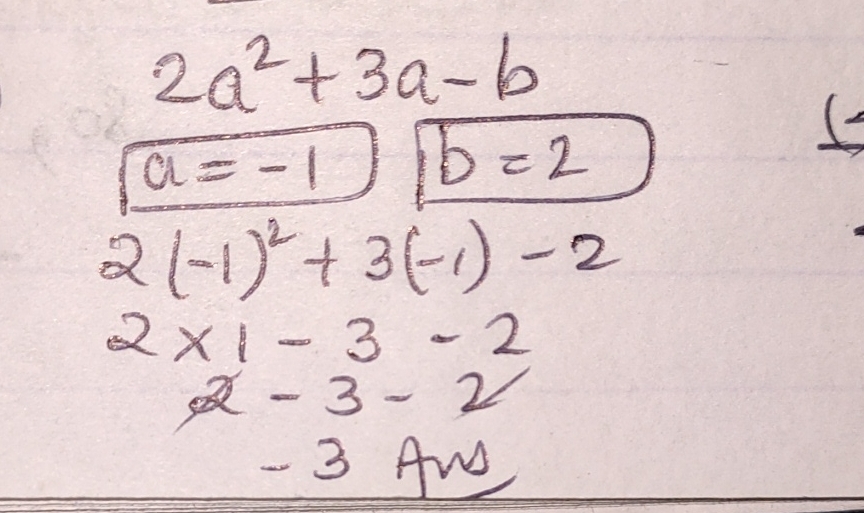 2a² + 3a - b
a = -1 b = 2
2(-1)² + 3(-1) - 2
2 × 1 - 3 - 2
2 - 3 - 2
- 3 Ans